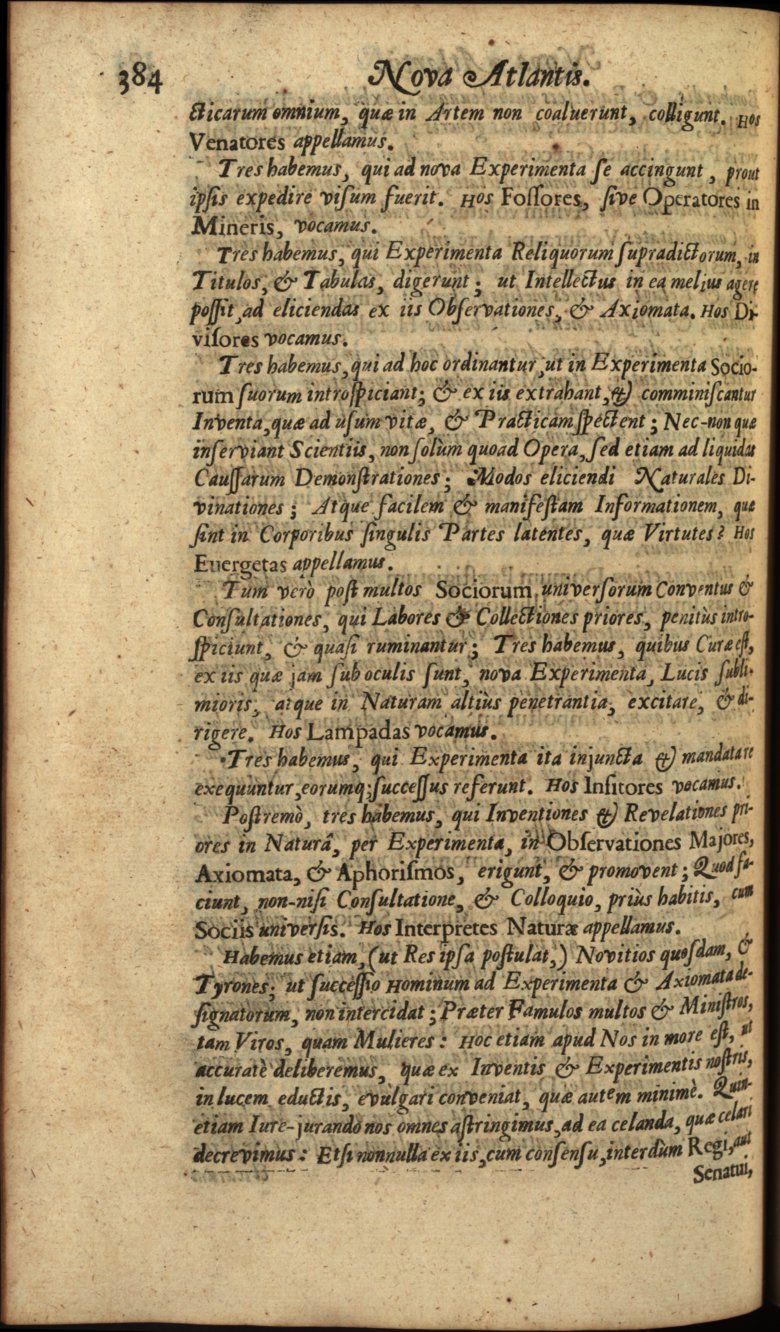 384 Nova Atlantis.
cticarum omnium, quæ in Artem non coaluerunt, colligunt. Hos
Venatores appellamus.
Tres habemus, qui ad nova Experimenta se accingunt, prout
ipsis expedire visum fuerit. Hos Fossores, sive Operatores in
Mineris, vocamus.
Tres habemus, qui Experimenta Reliquorum supradictorum, in
Titulos, & Tabulas, digerunt; ut Intellectus in ea melius agere
possit, ad eliciendas ex iis Observationes, & Axiomata. Hos Di-
visores vocamus.
Tres habemus, qui ad hoc ordinantur, ut in Experimenta Socio-
rum suorum introspiciant; & ex iis extrahant, & comminiscantur
Inventa, quæ ad usum vitæ, & Practicam spectent; Nec-non quæ
inserviant Scientiis, non solùm quoad Opera, sed etiam ad liquidas
Caussarum Demonstrationes; Modos eliciendi Naturales Di-
vinationes; Atque facilem & manifestam Informationem, quæ
sint in Corporibus singulis Partes latentes, quæ Virtutes? Hos
Euergetas appellamus.
Tum verò post multos Sociorum universorum Conventus &
Consultationes, qui Labores & Collectiones priores, penitùs intro-
spiciunt, & quasi ruminantur; Tres habemus, quibus Curæ est,
ex iis quæ jam sub oculis sunt, nova Experimenta, Lucis subli-
mioris, atque in Naturam altiùs penetrantia, excitare, & di-
rigere. Hos Lampadas vocamus.
Tres habemus, qui Experimenta ita injuncta & mandata re
exequuntur, eorumq; successus referunt. Hos Insitores vocamus.
Postremò, tres habemus, qui Inventiones & Revelationes pri-
ores in Naturâ, per Experimenta, in Observationes Majores,
Axiomata, & Aphorismos, erigunt, & promovent; Quod fa-
ciunt, non-nisi Consultatione, & Colloquio, priùs habitis, cum
Sociis universis. Hos Interpretes Naturæ appellamus.
Habemus etiam, (ut Res ipsa postulat,) Novitios quosdam, &
Tyrones; ut successio Hominum ad Experimenta & Axiomata de-
signatorum, non intercidat; Præter Famulos multos & Ministros,
tam Viros, quam Mulieres: Hoc etiam apud Nos in more est, ut
accuratè deliberemus, quæ ex Inventis & Experimentis nostris,
in lucem eductis, evulgari conveniat, quæ autem minimè. Quin-
etiam Iure-jurando nos omnes astringimus, ad ea celanda, quæ celari
decrevimus: Etsi nonnulla ex iis, cum consensu, interdùm Regi, aut
Senatui,